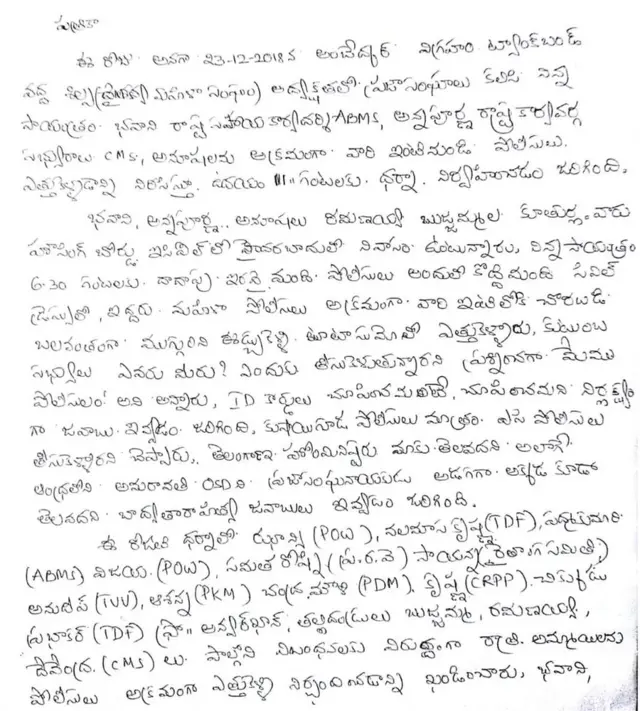 పత్రికా
ఈ రోజు అనగా 23-12-2018న అంబేద్కర్ విగ్రహం ట్యాంక్‌బండ్
వద్ద శిల్ప (చైతన్య మహిళా సంఘం) అధ్యక్షతలో ప్రజాసంఘాలు కలిసి నిన్న
సాయంత్రం భవాని రాష్ట్ర సహాయ కార్యదర్శి ABMS, అన్నపూర్ణ రాష్ట్ర కార్యవర్గ
సభ్యురాలు CMS, అనూషలను అక్రమంగా వారి ఇంటినుండి పోలీసులు
ఎత్తుకెళ్ళడాన్ని నిరసిస్తూ ఉదయం 11 గంటలకు ధర్నా నిర్వహించడం జరిగింది.
భవాని, అన్నపూర్ణ, అనూషలు రమణయ్య బుజ్జమ్మల కూతుర్లు. వారు
హౌసింగ్ బోర్డు హైదరాబాదులో నివాసం ఉంటున్నారు, నిన్న సాయంత్రం
6-30 గంటలకు దాదాపు ఇరవై మంది పోలీసులు అందులో కొద్దిమంది సివిల్
డ్రెస్సులో, ఇద్దరు మహిళా పోలీసులు అక్రమంగా వారి ఇంటిలోకి చొరబడి
బలవంతంగా ముగ్గురిని ఈడ్చుకెళ్ళి టాటాసుమోలో ఎత్తుకెళ్ళారు, కుటుంబ
సభ్యులు ఎవరు మీరు? ఎందుకు తీసుకెళుతున్నారని ప్రశ్నించగా మేము
పోలీసులం అని అన్నారు, ID కార్డులు చూపించమంటే, చూపించమని నిర్లక్ష్యం
గా జవాబు ఇవ్వడం జరిగింది, కుషాయిగూడ పోలీసులు మాత్రం ఏపి పోలీసులు
తీసుకెళ్ళారని చెప్పారు, తెలంగాణ హోంమినిష్టరు మాకు తెలవదని అలాగే
ఆంధ్రలోని అమరావతి OSDని ప్రజాసంఘనాయకుడు అడగగా అక్కడ కూడా
తెలవదని బాధ్యతారాహిత్య జవాబులు ఇవ్వడం జరిగింది.
ఈ రోజు ధర్నాలో ఝాన్సి (POW), నలమాస కృష్ణ (TDF), పద్మకుమారి
(ABMS) విజయ (POW), సమత రోష్ని (ప్ర.ర.వే) సాయన్న (రైతాంగ సమితి)
అనుదీప్ (TVV), (PKM) చంద్రమౌళి (PDM), కృష్ణ (CRPP), చిక్కుడు
ప్రభాకర్ (TDF) ప్రొ॥ అన్వర్‌ఖాన్, తల్లిదండ్రులు బుజ్జమ్మ, రమణయ్య,
దేవేంద్ర (CMS) లు పాల్గొని నిబంధనలకు విరుద్ధంగా రాత్రి అమ్మాయిలను
పోలీసులు అక్రమంగా ఎత్తుకెళ్ళి నిర్బంధించడాన్ని ఖండించారు, భవాని,